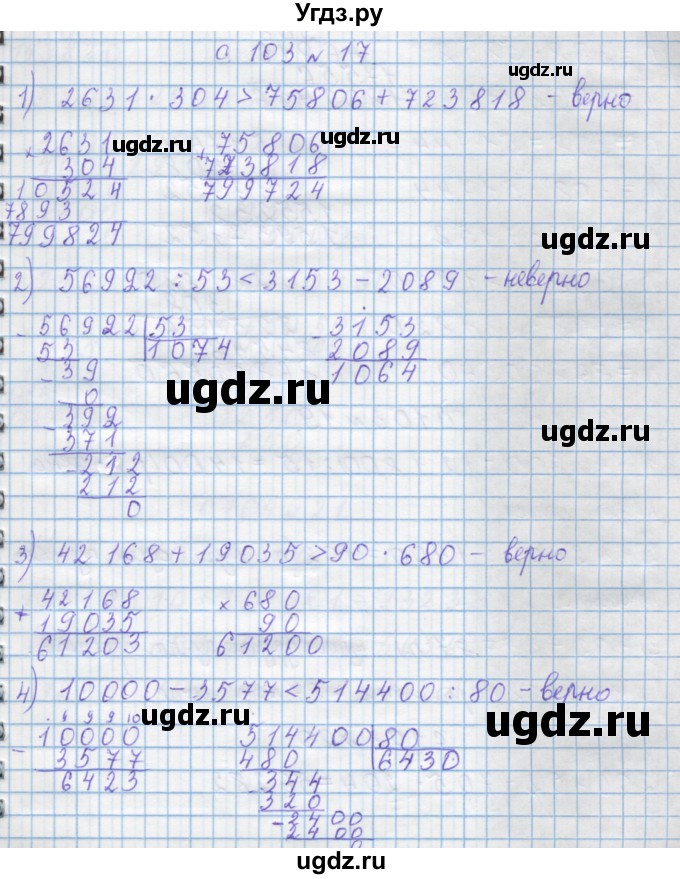 Угдз.ру
с 103 № 17
1) 2631 · 304 > 75806 + 723818 - верно
× 2631 + 75806
304 723818
10524 799724
7893
799824
2) 56922 : 53 < 3153 - 2089 - неверно
- 56922 | 53 - 3153
53 1074 2089
- 39 1064
0
- 392
371
- 212
212
0
3) 42168 + 19035 > 90 · 680 - верно
+ 42168 × 680
19035 90
61203 61200
4) 10000 - 3577 < 514400 : 80 - верно
9 9 10
- 10000 514400 | 80
3577 480 6430
6423 - 344
320
- 2400
2400
0
ugdz.ru
ugdz.ru
ugdz.ru
ugdz.ru
ugdz.ru
ugdz.ru
ugdz.ru
ugdz.ru
ugdz.ru
ugdz.ru
ugdz.ru
ugdz.ru
ugdz.ru